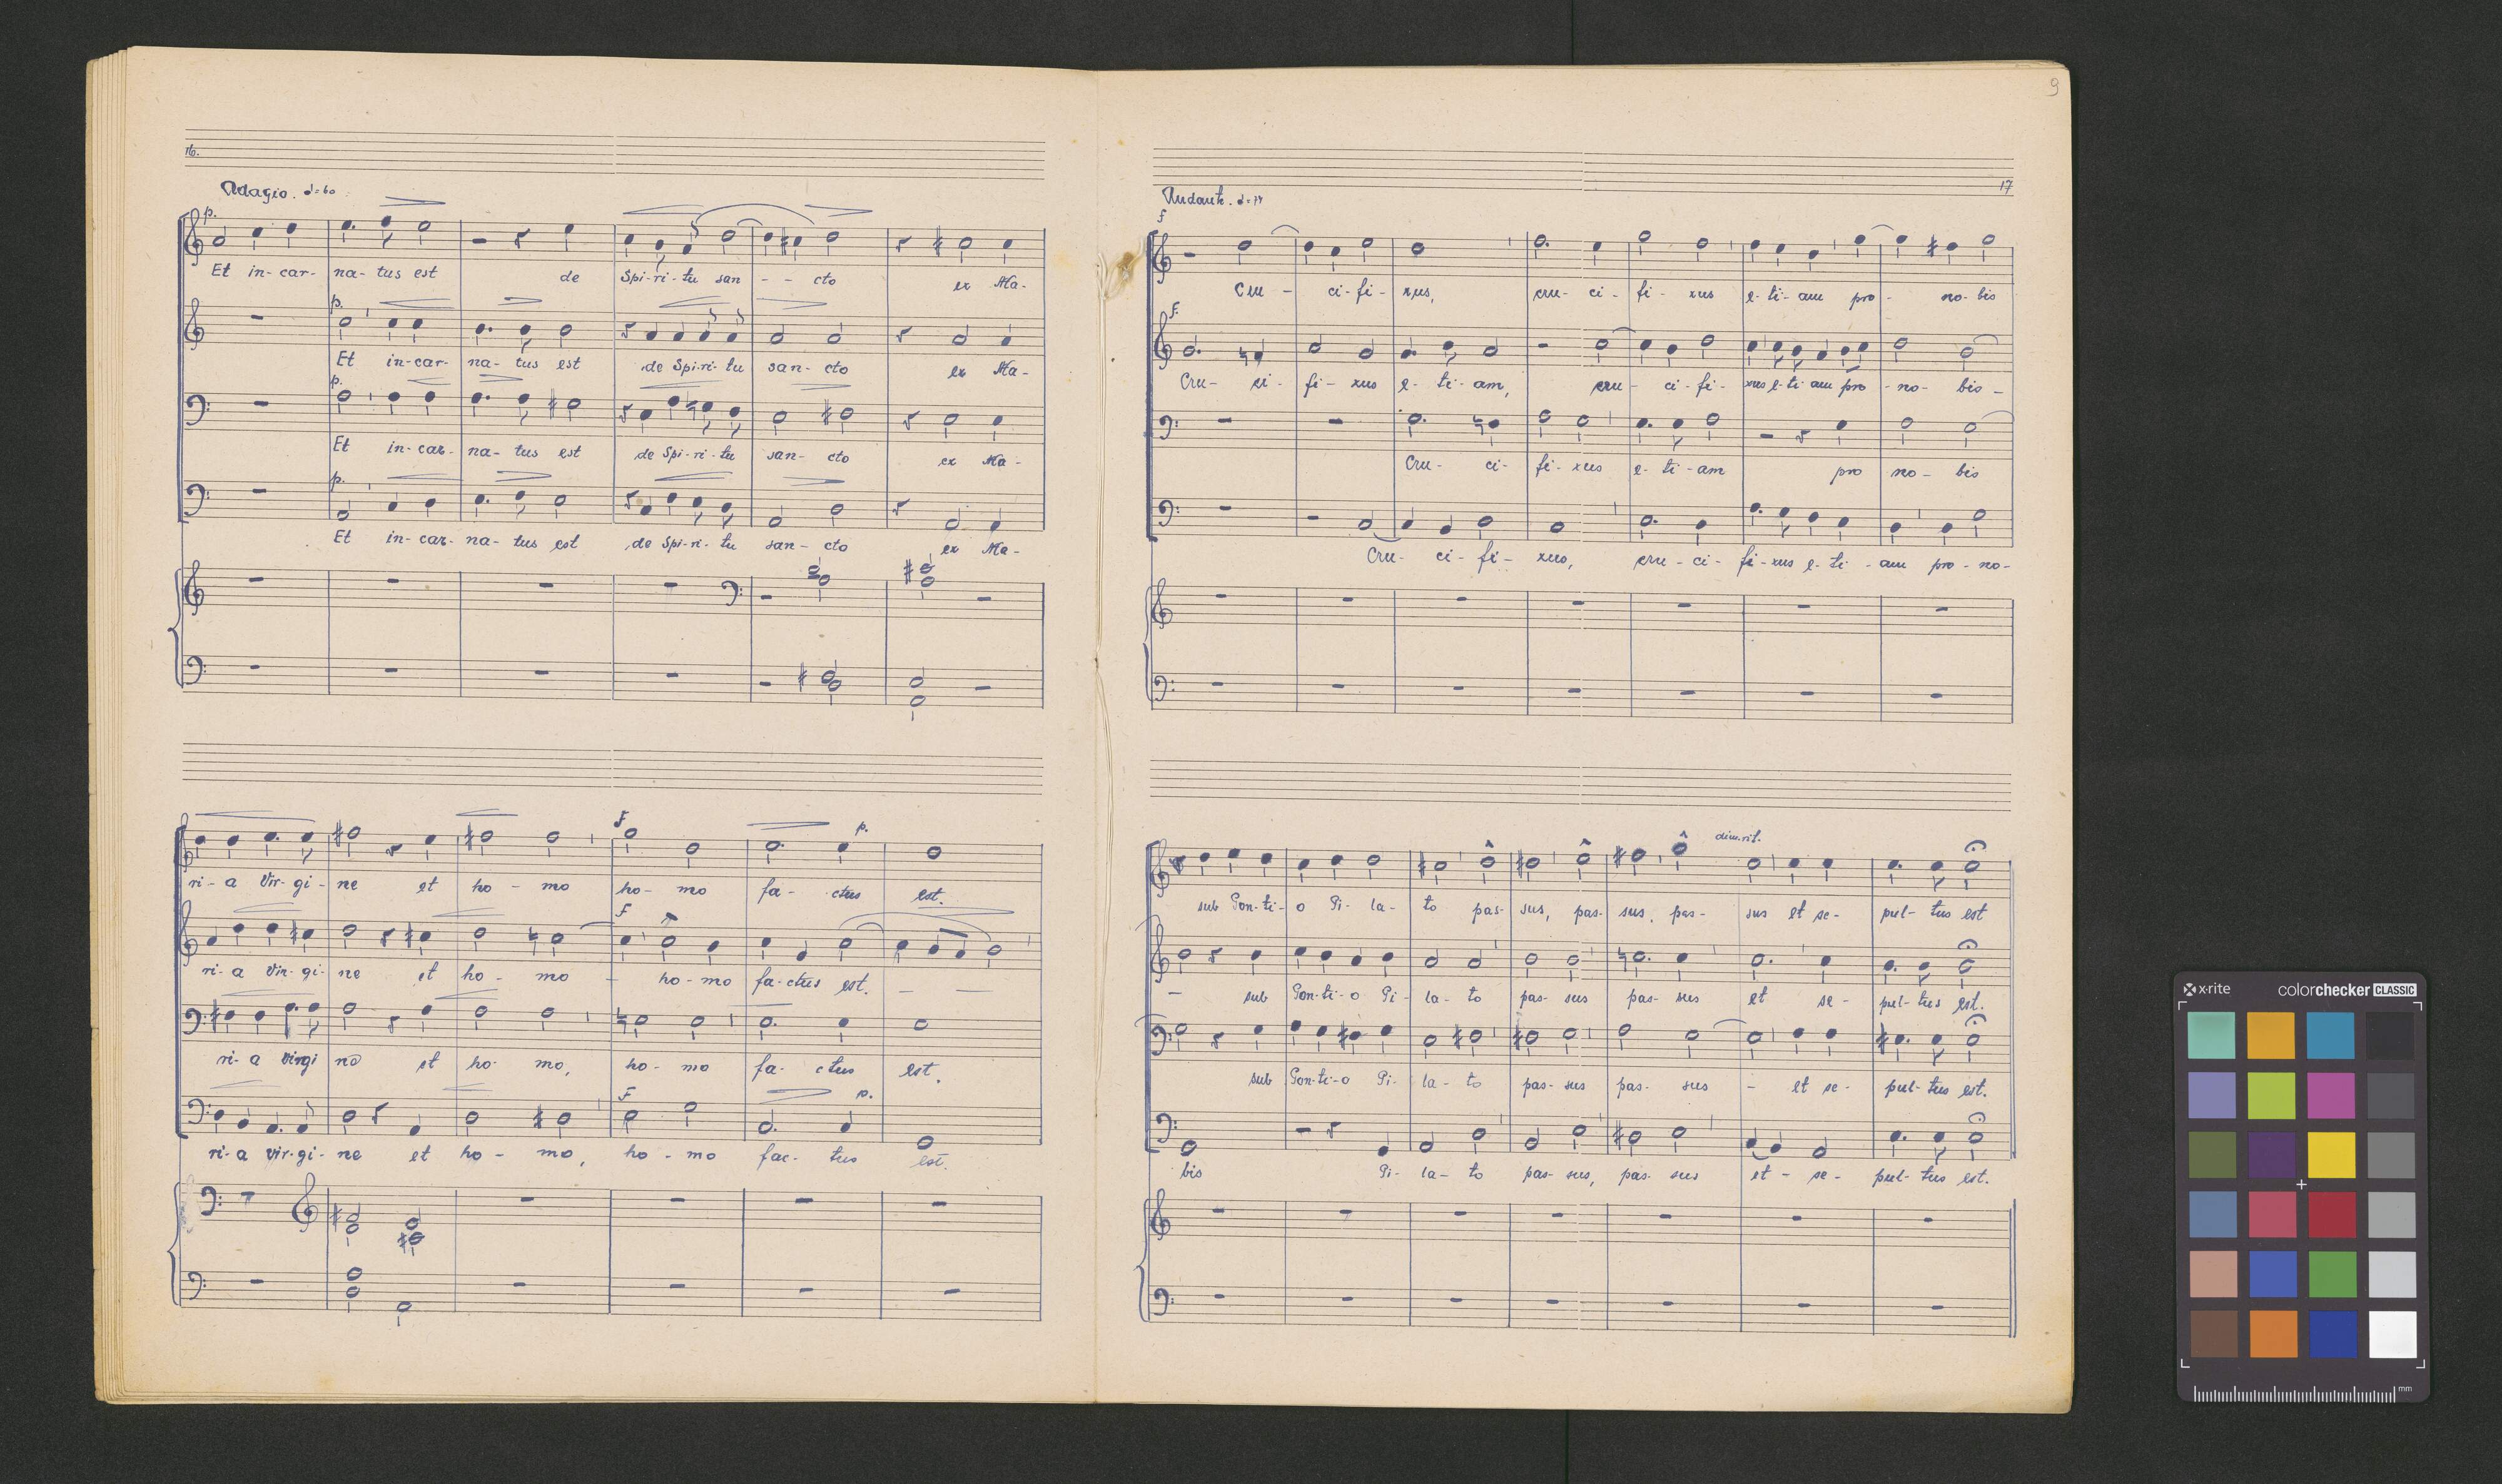 16.
Adagio. d=60
p.
Et in- car- na- tus est de Spi- ri- tu san - - cto ex Ma-
p.
Et in- car- na- tus est de Spi- ri- tu san- cto ex Ma-
p.
Et in- car- na- tus est de Spi- ri- tu san- cto ex Ma-
p.
Et in- car- na- tus est de Spi- ri- tu san- cto ex Ma-
f p.
ri- a Vir- gi- ne et ho - mo ho- mo fa- ctus est.
f
ri- a vir- gi- ne et ho- mo - ho- mo fa- ctus est. - -
ri- a virgi ne et ho- mo, ho- mo fa- ctus est.
f p.
ri- a vir- gi- ne et ho- mo, ho- mo fac- tus est.
9
17
Andante. d=74
f
Cru - ci- fi- xus, cru- ci- fi- xus e- ti- am pro - no- bis
f.
Cru- ci- fi- xus e- ti- am, cru- ci- fi- xus e- ti am pro - no- bis -
Cru- ci- fi- xus e- ti- am pro no- bis
Cru- ci- fi- xus, cru- ci- fi- xus e- ti - am pro- no-
dim. rit.
sub Pon- ti- o Pi- la- to pas- sus, pas- sus, pas- sus et se- pul- tus est
- sub Pon- ti- o Pi- la- to pas- sus pas- sus et se- pul- tus est.
sub Pon- ti- o Pi- la- to pas- sus pas- sus - et se- pul- tus est.
bis Pi- la- to pas- sus, pas- sus et - se- pul- tus est.
x-rite colorchecker CLASSIC
mm